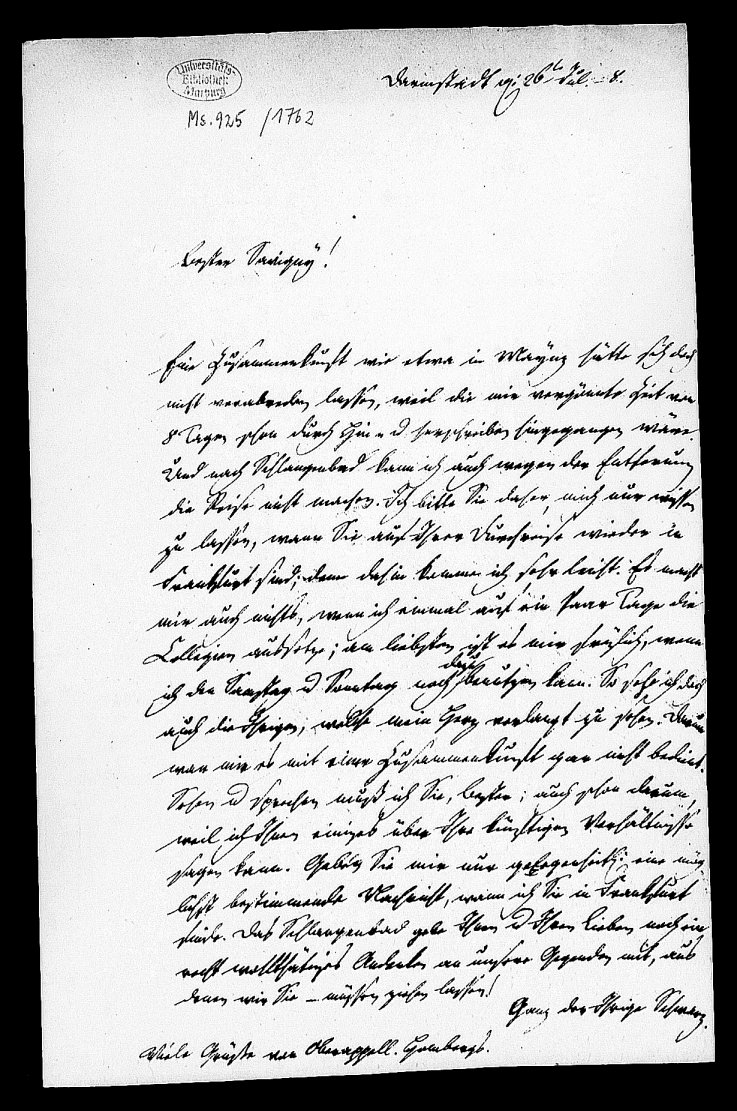 Universitäts-
Bibliothek
Marburg
Ms. 925 /1762
Darmstadt 26 Jul. 8.
Bester Savigny!
Eine Zusammenkunft wie etwa in Maynz hätte sich doch
nicht verabreden lassen, weil die mir vergönnte Zeit von
8 Tagen schon durch Hin- u herschreiben hingegangen wäre.
Und nach Schlangenbad kann ich auch wegen der Entfernung
die Reise nicht machen. Ich bitte Sie daher, mich nur wissen
zu lassen, wann Sie auf Ihrer Durchreise wieder in
Frankfurt sind; denn dahin komme ich sehr leicht. Es macht
mir auch nichts, wenn ich einmal auf ein Paar Tage die
Collegien aussetze; am liebsten ist es mir freylich, wenn
ich den Samstag u Sonntag noch dazu benutzen kann. So sehe ich doch
auch die Ihrigen, welche mein Herz verlangt zu sehen. Darum
war mir es mit einer Zusammenkunft gar nicht bedient.
Sehen u sprechen muß ich Sie, bester; auch schon darum,
weil ich Ihnen einiges über Ihre künftigen Verhältnisse
sagen kann. Geben Sie mir nur eine mög-
lichst bestimmende Nachricht, wann ich Sie in Frankfurt
finde. Das Schlangenbad gebe Ihnen u Ihren Lieben noch ein
recht wohlthätiges Andenken an unsere Gegenden mit, aus
denen wir Sie – müssen ziehen lassen!
Ganz der Ihrige Schwarz.
Viele Grüße von Oberappell. Hombergk.